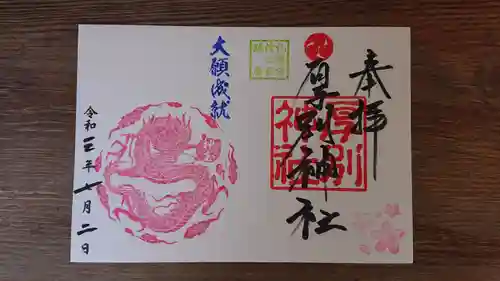 奉拝
厚別神社
厚別
神社
大願成就
令和三年七月二日